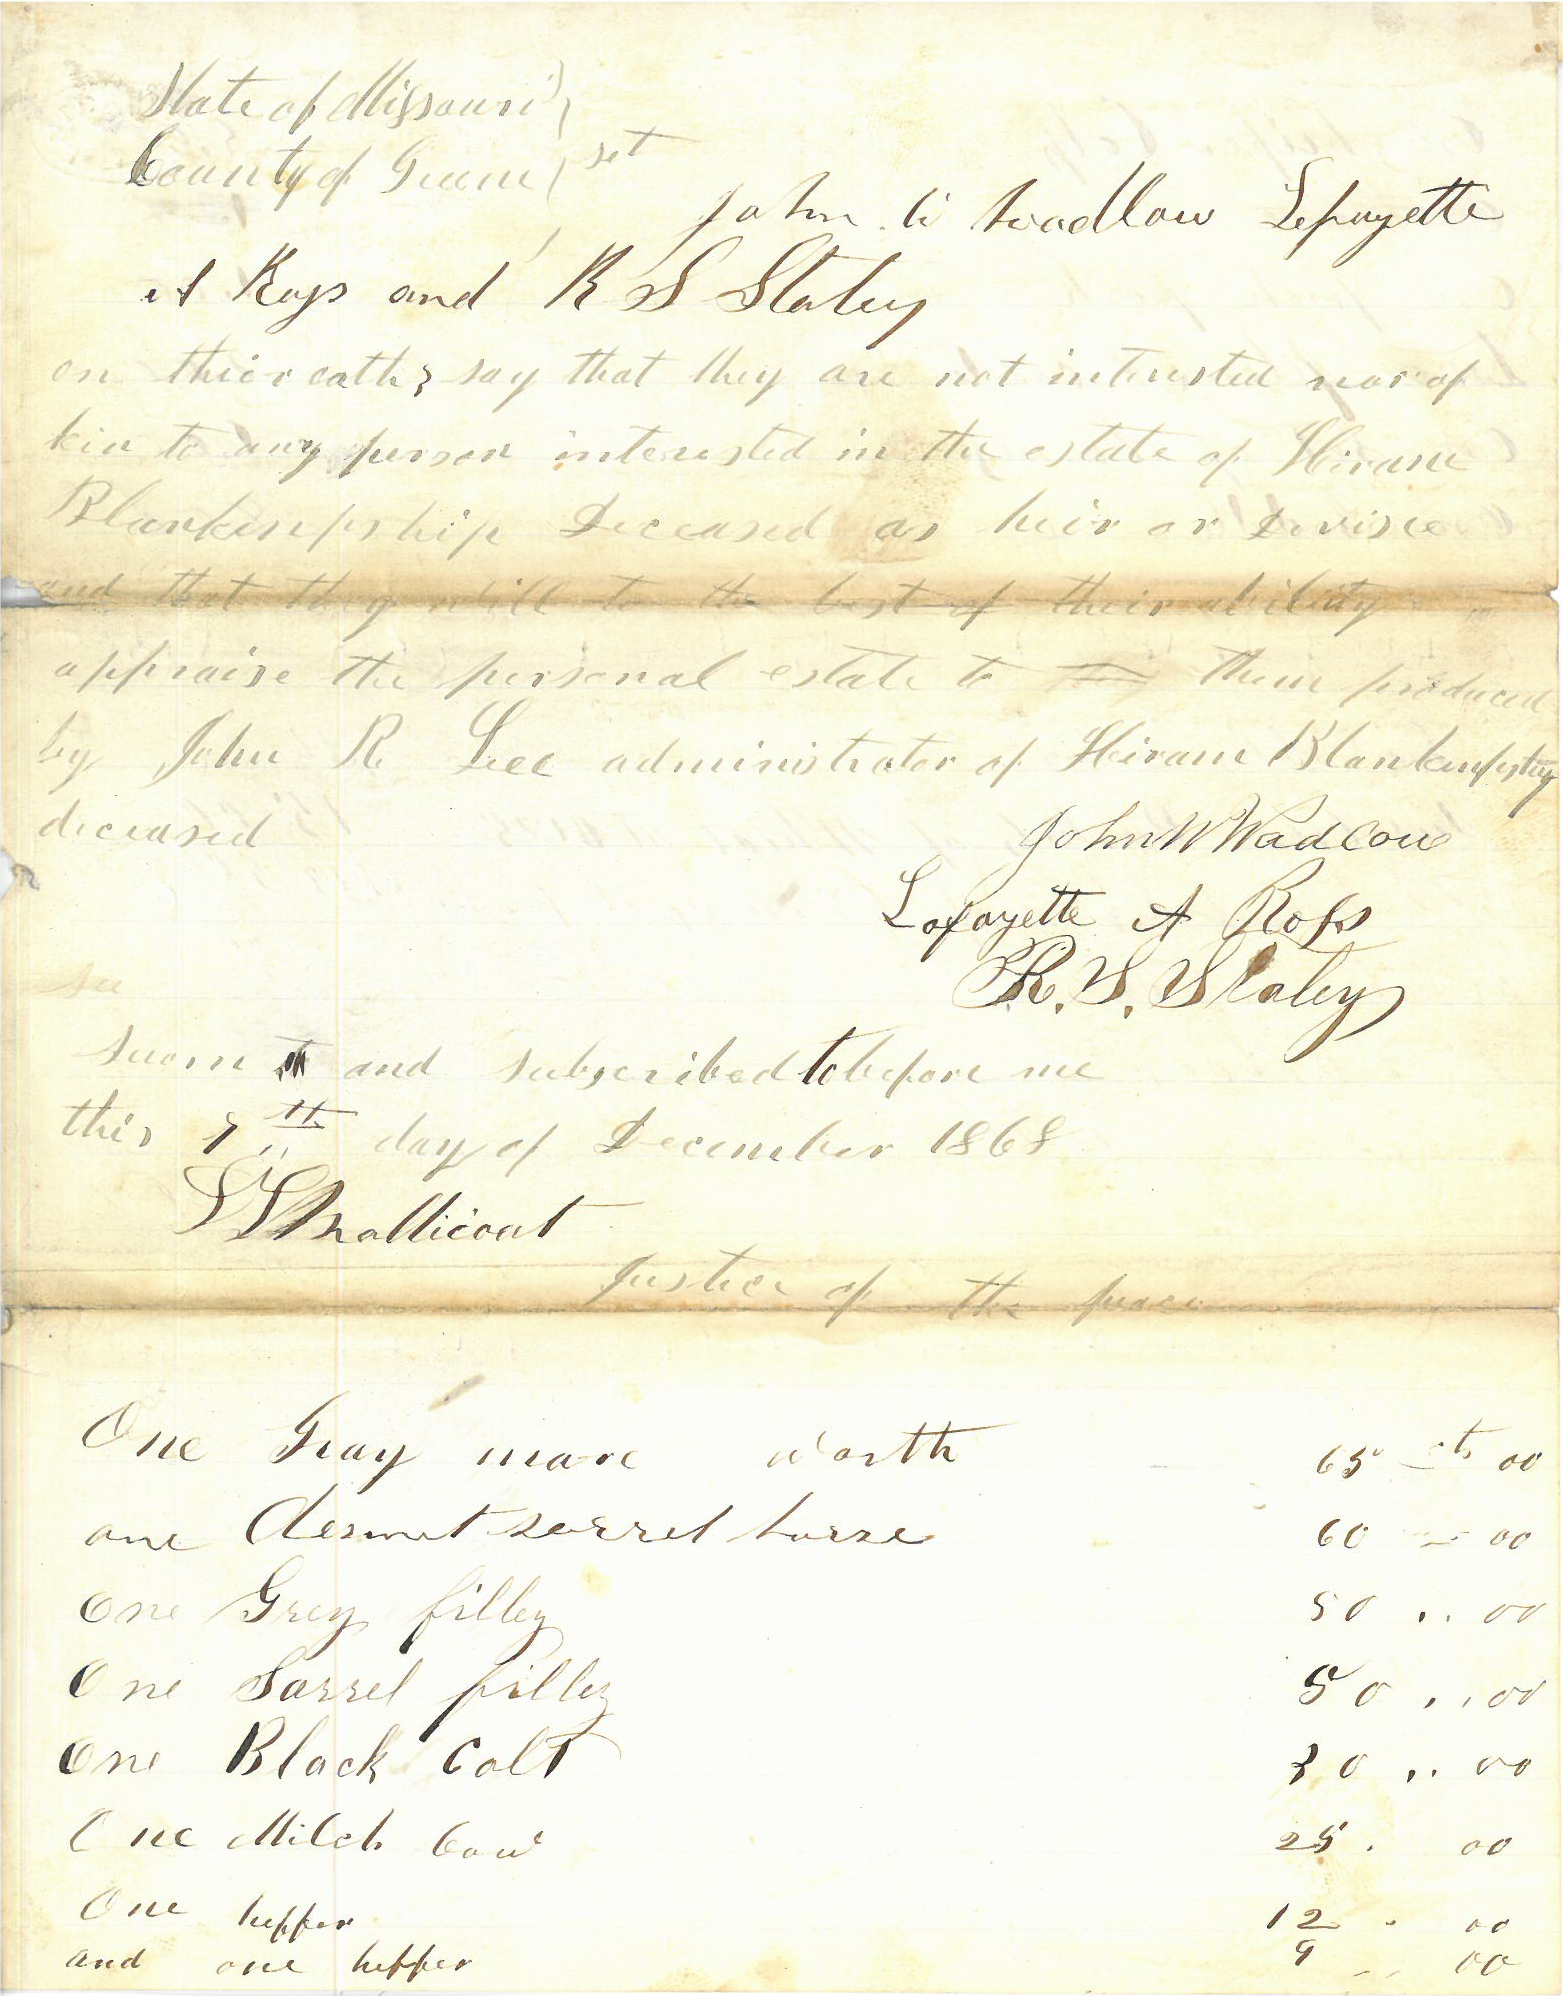 State of Missouri )
County of Green ( sct
John W Wadlow Lefayette
A Ross and R S Staley
on thier oaths say that they are not interested nor of
kin to any person interested in the estate of Hiram
Blankenpship Deceased as heir or Devisee
and that they will to the best of their ability
appraise the personal estate to them produced
by John R Lee administrator of Hiram Blankenpship
deceased
John W Wadlow
Lafayette A Ross
R. S. Staley
su
suorn and subscribed to before me
this 7th day of December 1868
Mallicoat
Justice of the peace
One Gray mare worth 65 cts 00
one desmut sorrel horse 60 00
One Grey filley 50 .. 00
One Sorrel filley 50 .. 00
One Black Colt 30 .. 00
One Milch Cow 25 . 00
One heffer 12 . 00
and one heffer 9 .. 00